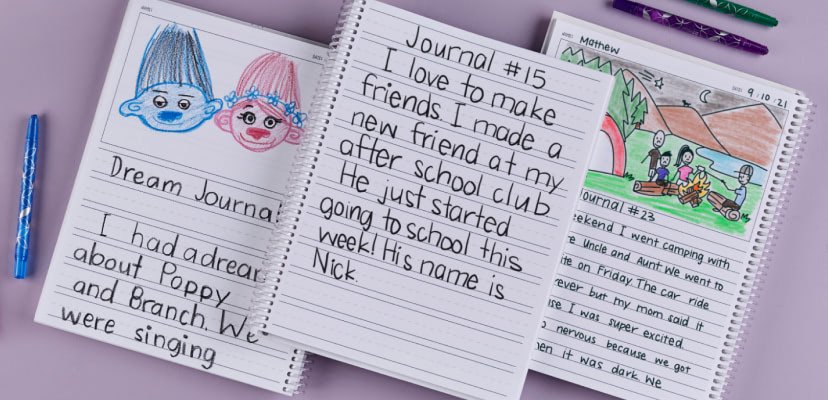 Dream Journal
I had a dream
about Poppy
and Branch. We
were singing
Journal #15
I love to make
friends. I made a
new friend at my
after school club
He just started
going to school this
week! His name is
Nick.
Mathew
9.10.21
Journal #23
weekend I went camping with
Uncle and Aunt. We went to
on Friday. The car ride
but my mom said it
I was super excited.
nervous because we got
when it was dark. We